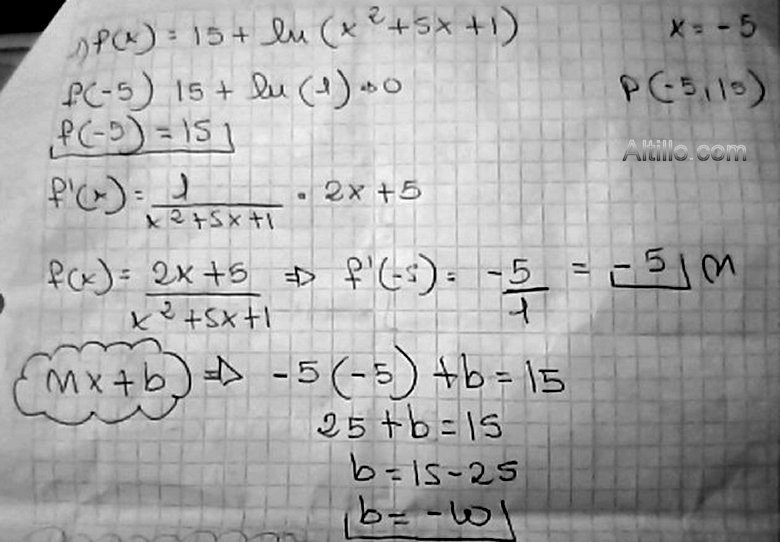 1) f(x) = 15 + ln (x² + 5x + 1)    x = -5
f(-5) 15 + ln (1) → 0    P(-5, 15)
f(-5) = 15
Altillo.com
f'(x) = 1/(x² + 5x + 1) · 2x + 5
f(x) = (2x + 5)/(x² + 5x + 1) ⇒ f'(-5) = -5/1 = -5 m
mx + b ⇒ -5(-5) + b = 15
25 + b = 15
b = 15 - 25
b = -10